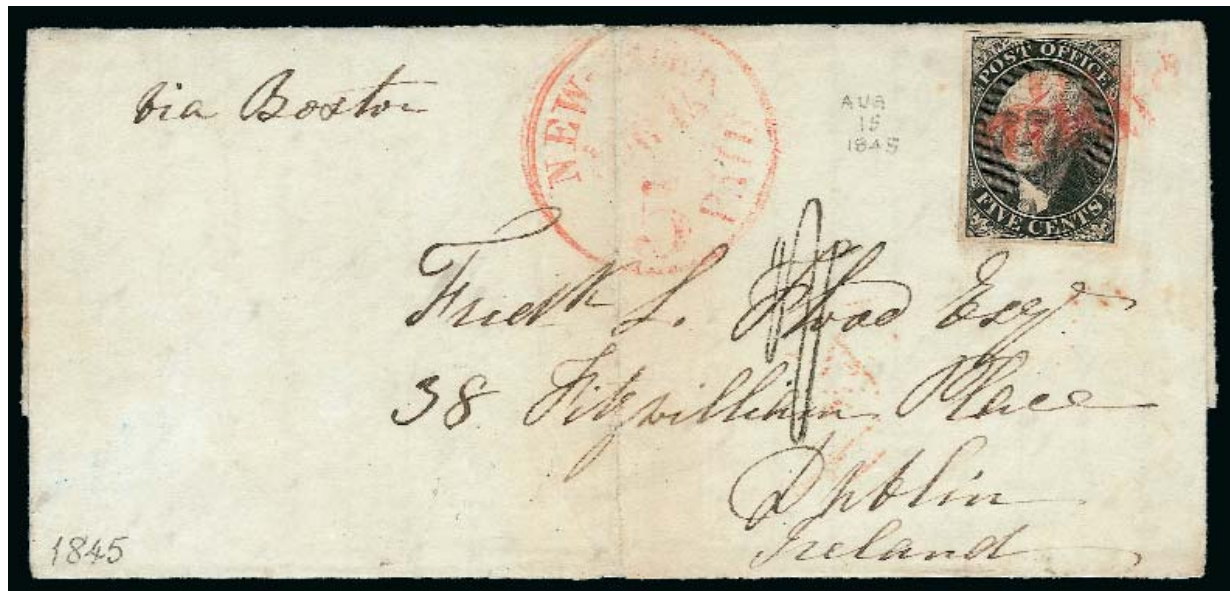 via Boston
NEW-
5
PAID
AUG
15
1845
POST OFFICE
FIVE CENTS
Fredk L. Esqr
38 Fitzwilliam Place
Dublin
Ireland
1845